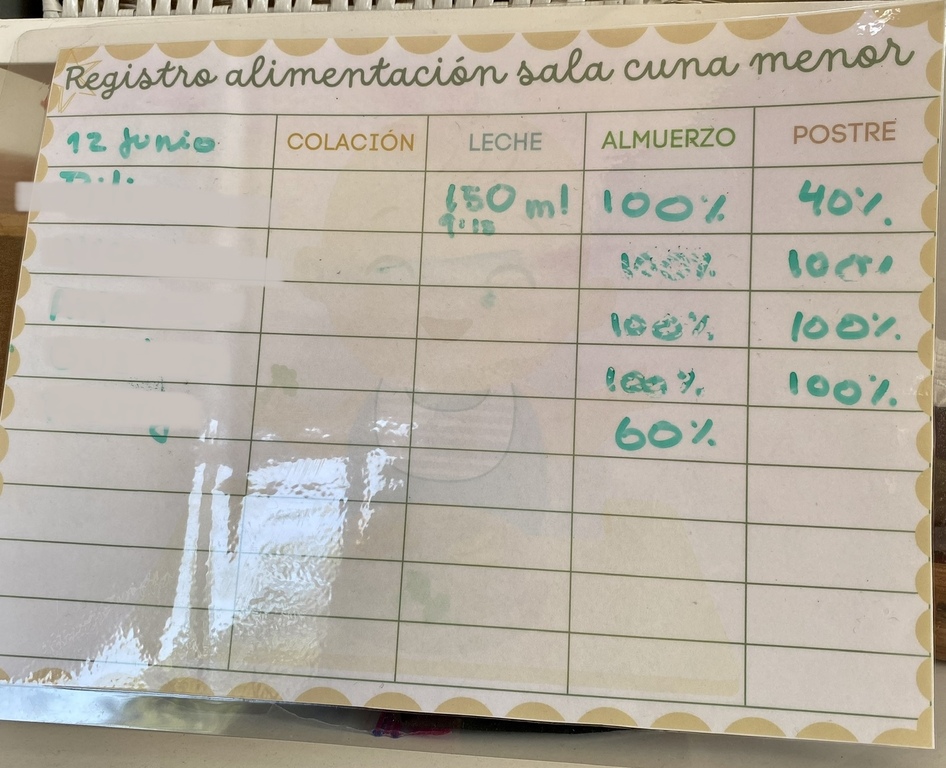 Registro alimentación sala cuna menor
12 Junio COLACIÓN LECHE ALMUERZO POSTRE
150 ml 100% 40%
9:10
100% 100%
100% 100%
100% 100%
60%